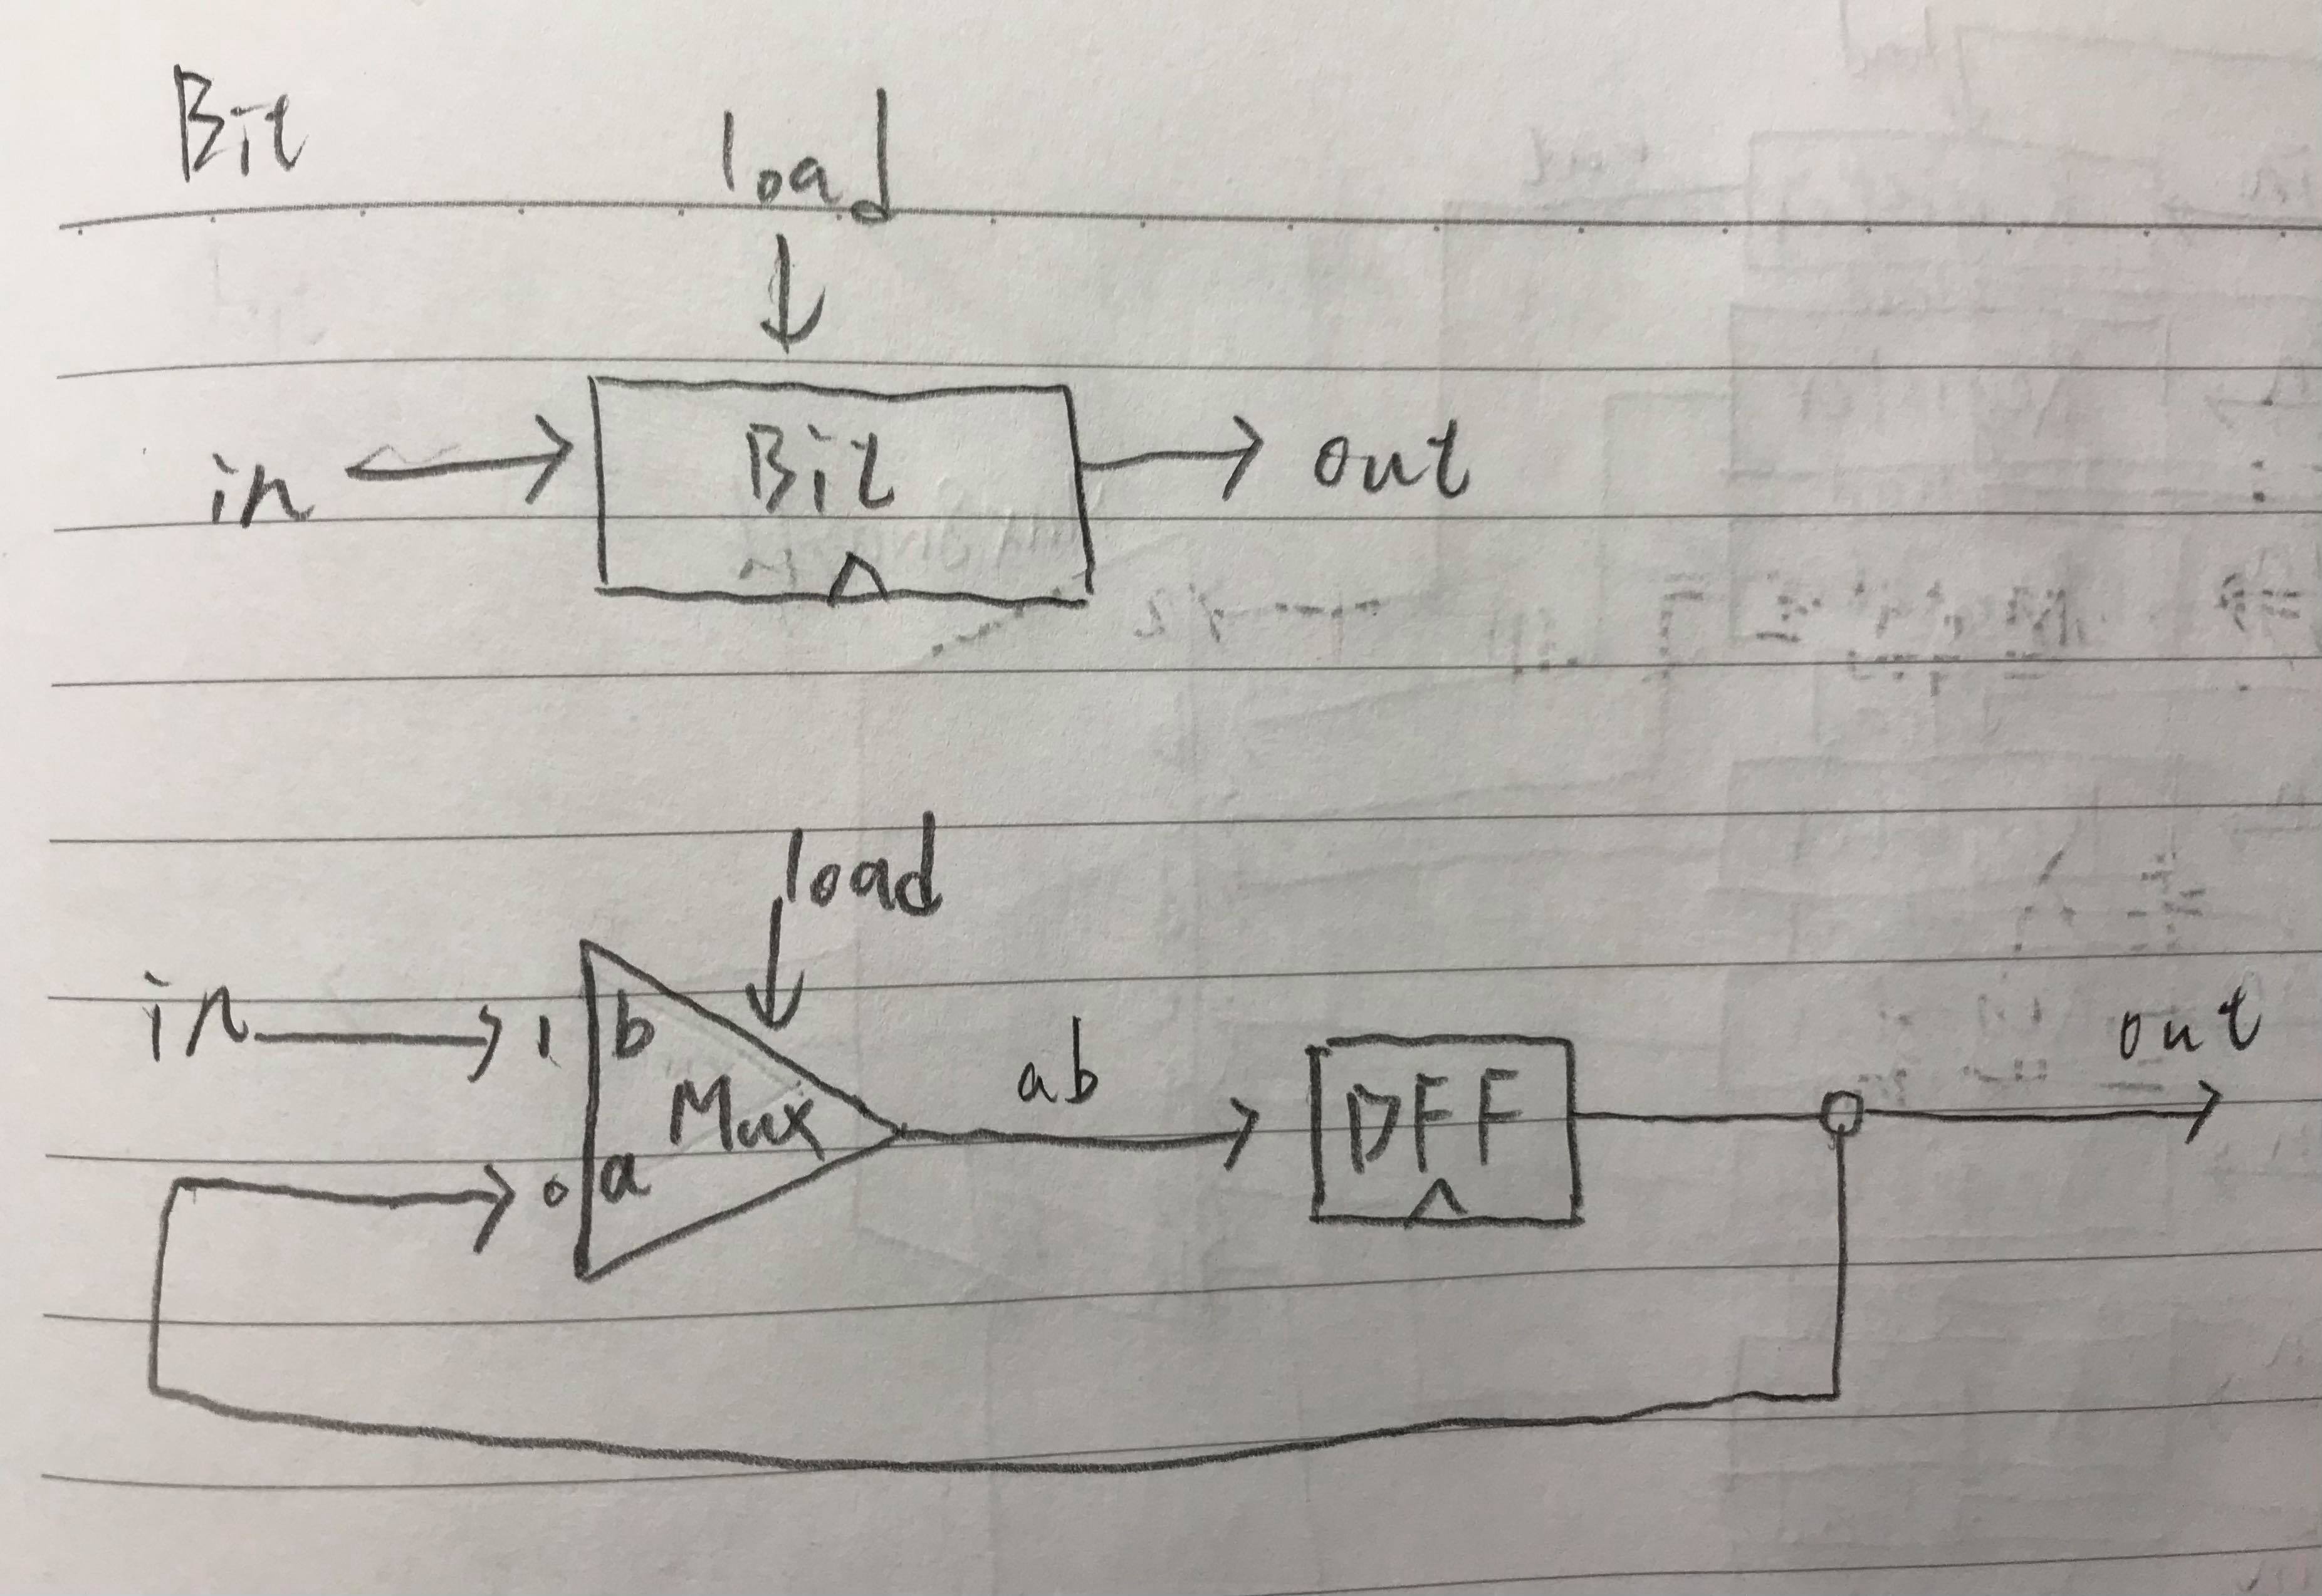 Bit
load
in
Bit
out
load
in 1 b
Mux
ab
DFF
out
0 a